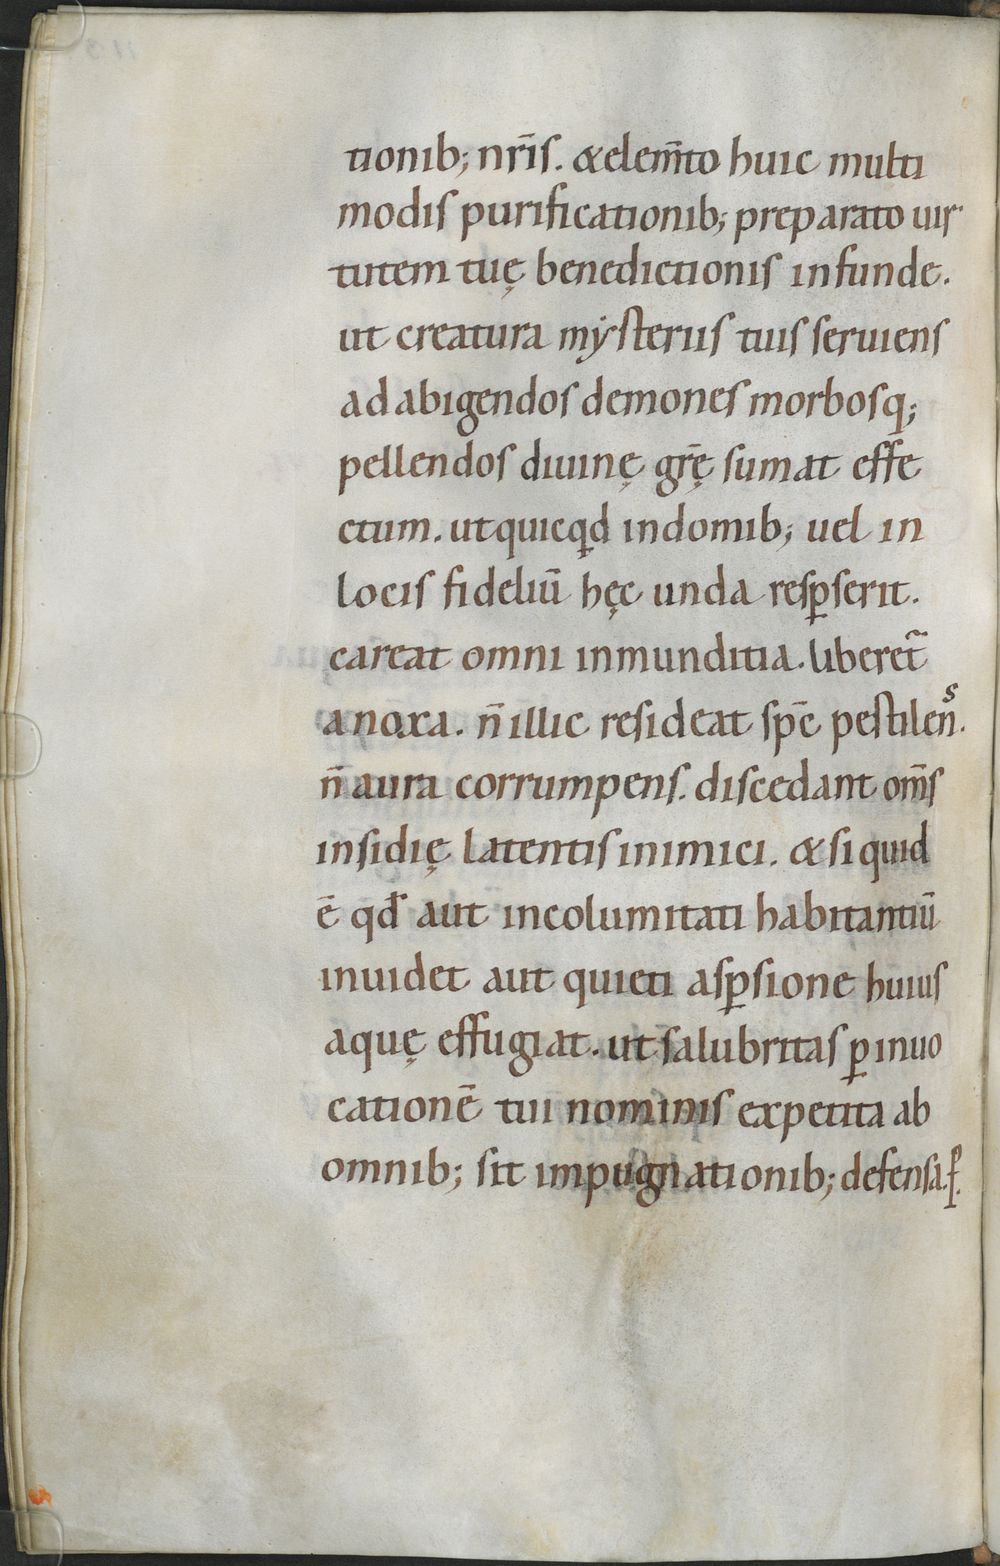 tionib; nr̄is. & elem̄to huic multi
modis purificationib; preparato uir
tutem tuę benedictionis infunde.
ut creatura mẏsteriis tuis seruiens
ad abigendos demones morbosq;
pellendos diuinę gr̄ę sumat effe
ctum. ut quicqd in domib; uel in
locis fideliū hęc unda resꝑserit.
careat omni inmunditia. liberet̃
a noxa. n̄ illic resideat sp̄c pestilens̄.
n̄ aura corrumpens. discedant om̄s
insidię latentis inimici. & si quid
ē qd̄ aut incolumitati habitantiū
inuidet aut quieti asꝑsione huius
aquę effugiat. ut salubritas ꝑ inuo
cationē tui nominis expetita ab
omnib; sit impugnationib; defensa. ꝑ.